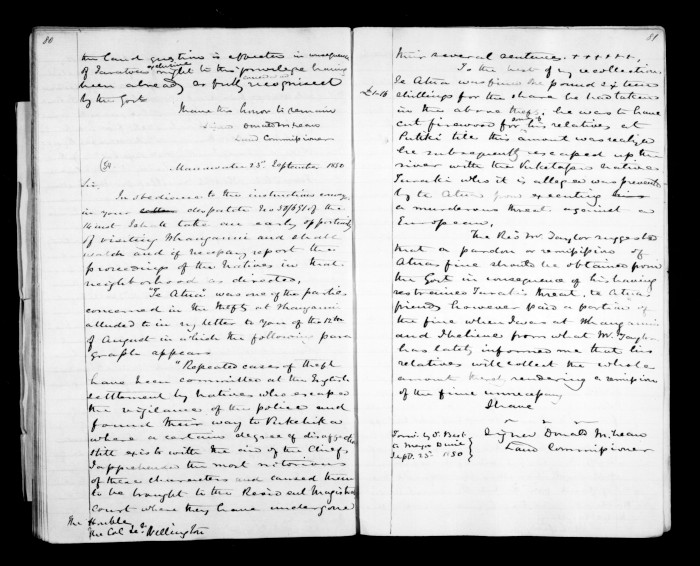 80
the land question is effected in consequence
of Taratoa's exclusive right to this privilege having
been already so fully recognised
by the Govt
I have the honor to remain
Signed Donald McLean
Land Commissioner
Manawatu 25th September 1850
Sir,
In obedience to the instructions
in your despatch No of the
14 inst I shall take an early opportunity
of visiting Whanganui and shall
watch and if necessary report the
proceedings of the Natives in that
neighborhood as directed,
Te Atua was one of the parties
concerned in the thefts at Whanganui
alluded to in my letter to you of the 12th
of August in which the following para
graph appears
"Repeated cases of theft
have been committed at the English
settlement by Natives who escape
the vigilance of the police and
found their way to Pukehika
where a certain degree of disaffection
still exists with the aid of the Chiefs
I apprehended the most notorious
of these characters and caused them
to be brought to the Resident Magistrates
court where they have undergone
The Honble
The Col Secy Wellington
81
their several sentence. + + + + + +,
To the best of my recollection
Te Atua was fined one pound & sixteen
£1.16
shillings for the share he had taken
in the above thefts, he was to have
cut firewood for his relatives at
Putiki till this amount was realized
he subsequently escaped up the
river with the Natives
Turaki who it is alleged was prevented
by Te Atua from executing
a murderous threat against a
European,
The Revd Mr Taylor suggested
that a pardon or remission of
Atuas fine should be obtained from
the Govt in consequence of his having
restrained Turaki's threat, te Atuas
friends however paid a portion of
the fine when I was at Whanganui
and I believe from what Mr Taylor
has lately informed me that his
relatives will collect the whole
amount rendering a remission
of the fine unnecessary
I have
Signed Donald McLean
Land Commissioner
Sept. 25th 1850